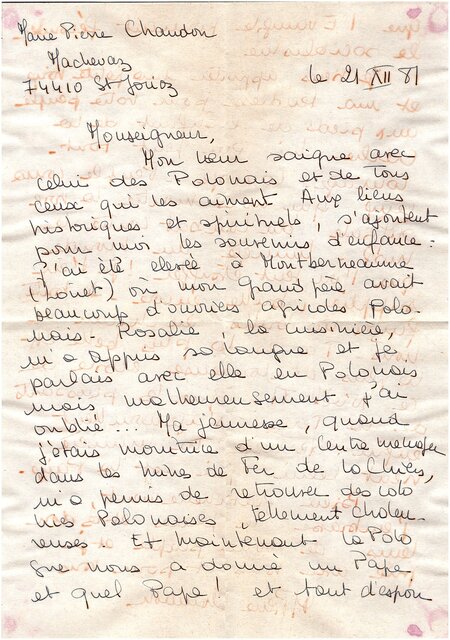 Marie Pierre Chaudon
Machevaz
74410 St Jorioz
le 21 XII 81
Monseigneur,
Mon cœur saigne avec
celui des Polonais et de tous
ceux qui les aiment Aux liens
historiques et spirituels, s'ajoutent
pour moi les souvenirs d'enfance :
j'ai été elevée à Montberneaume
(Loiret) où mon Grand père avait
beaucoup d'ouvriers agricoles Polo-
nais - Rosalie, la cuisinière,
m'a appris sa langue et je
parlais avec elle en Polonais
mais malheureusement j'ai
oublié... Ma jeunesse, quand
j'étais monitrice d'un Centre menager
dans les mines de Fer de la Chiers,
m'a permis de retrouver des colo
nies Polonaises, tellement chaleu-
reuses Et maintenant la Polo
gne nous a donné un Pape
et quel Pape ! et tant d'espoir